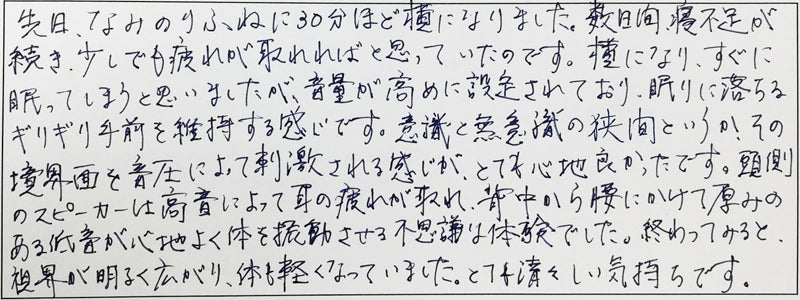 先日、なみのりふねに30分ほど横になりました。数日間、寝不足が
続き、少しでも疲れが取れればと思っていたのです。横になり、すぐに
眠ってしまうと思いましたが、音量が高めに設定されており、眠りに落ちる
ギリギリ手前を維持する感じです。意識と無意識の狭間というか、その
境界面を音圧によって刺激される感じが、とても心地良かったです。頭側
のスピーカーは高音によって耳の疲れが取れ、背中から腰にかけて厚みの
ある低音が心地よく体を振動させる不思議な体験でした。終わってみると、
視界が明るく広がり、体も軽くなっていました。とても清々しい気持ちです。